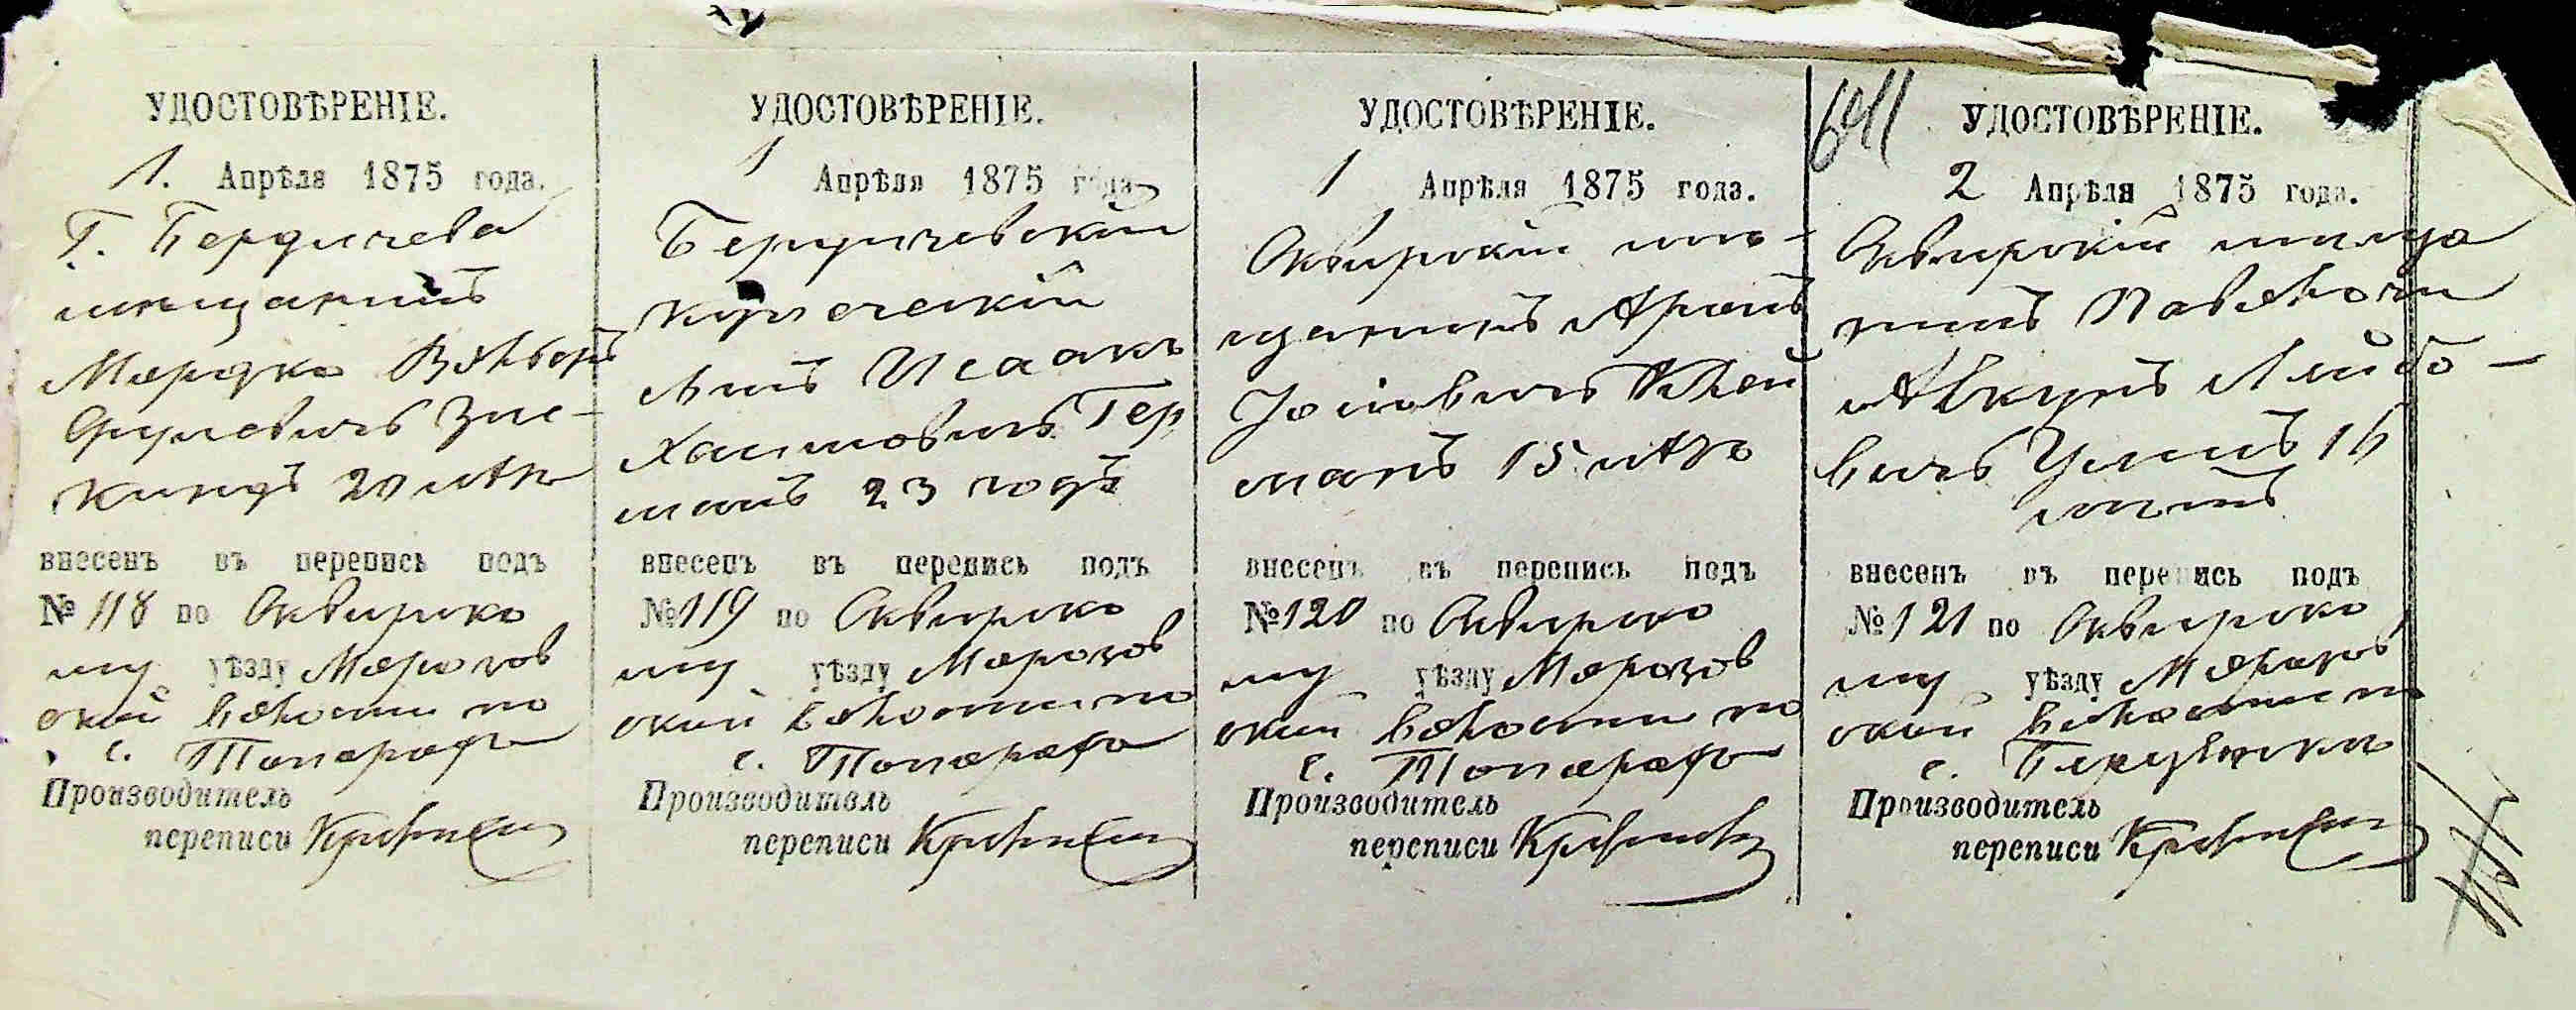 УДОСТОВѢРЕНІЕ.
1. Апрѣля 1875 года.
Г. Бердичева
мѣщанинъ
Мордко Вольфъ
Сруловичъ Зис-
киндъ 20 лѣтъ
внесенъ въ перепись подъ
№ 118 по Сквирско
му уѣзду Морозов
ской волости по
с. Топорахъ
Производитель
переписи
УДОСТОВѢРЕНІЕ.
1 Апрѣля 1875 года
Бердичевскій
купеческій
сынъ Исаакъ
Хаимовичъ Гер
манъ 23 годъ
внесенъ въ перепись подъ
№ 119 по Сквирско
му уѣзду Морозов
ской волости по
с. Топорахъ
Производитель
переписи
УДОСТОВѢРЕНІЕ.
1 Апрѣля 1875 года.
Сквирскій мѣ-
щанинъ Аронъ
Іосіовичъ Клей
манъ 15 лѣтъ
внесенъ въ перепись подъ
№ 120 по Сквирско
му уѣзду Морозов
ской волости по
с. Топорахъ
Производитель
переписи
641
УДОСТОВѢРЕНІЕ.
2 Апрѣля 1875 года.
Сквирскій мѣща
нинъ Паволочи
Лейбо-
вичъ 16
лѣтъ
внесенъ въ перепись подъ
№ 121 по Сквирско
му уѣзду Морозов
ской волости по
с.
Производитель
переписи